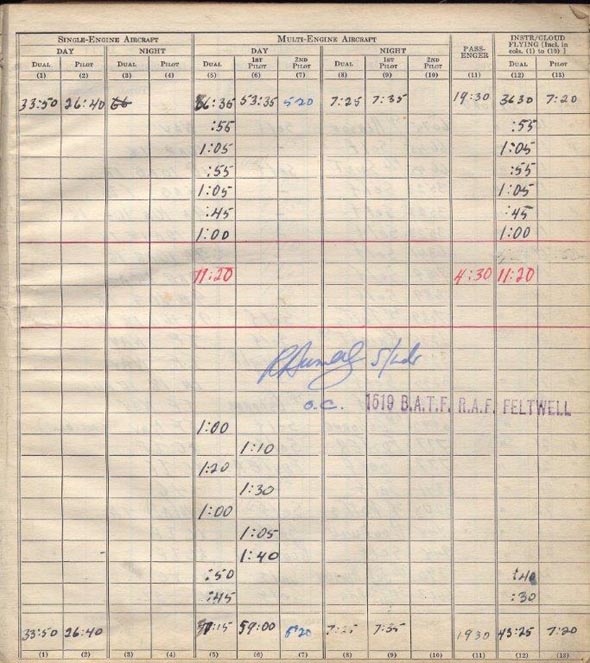 SINGLE-ENGINE AIRCRAFT MULTI-ENGINE AIRCRAFT PASS-ENGER INSTR/CLOUD FLYING [Incl. in cols. (1) to (10)]
DAY NIGHT DAY NIGHT
DUAL PILOT DUAL PILOT DUAL 1ST PILOT 2ND PILOT DUAL 1ST PILOT 2ND PILOT DUAL PILOT
(1) (2) (3) (4) (5) (6) (7) (8) (9) (10) (11) (12) (13)
33:50 26:40 53:35 5:20 7:25 7:35 19:30 3630 7:20
:55 :55
1:05 1:05
:55 :55
1:05 1:05
:45 :45
1:00 1:00
11:20 4:30 11:20
S/Ldr
O.C. 1519 B.A.T.F. R.A.F. FELTWELL
1:00
1:10
1:20
1:30
1:00
1:05
1:40
:50 :40
:45 :30
33:50 26:40 59:00 5:20 7:25 7:35 1930 43:25 7:20
(1) (2) (3) (4) (5) (6) (7) (8) (9) (10) (11) (12) (13)